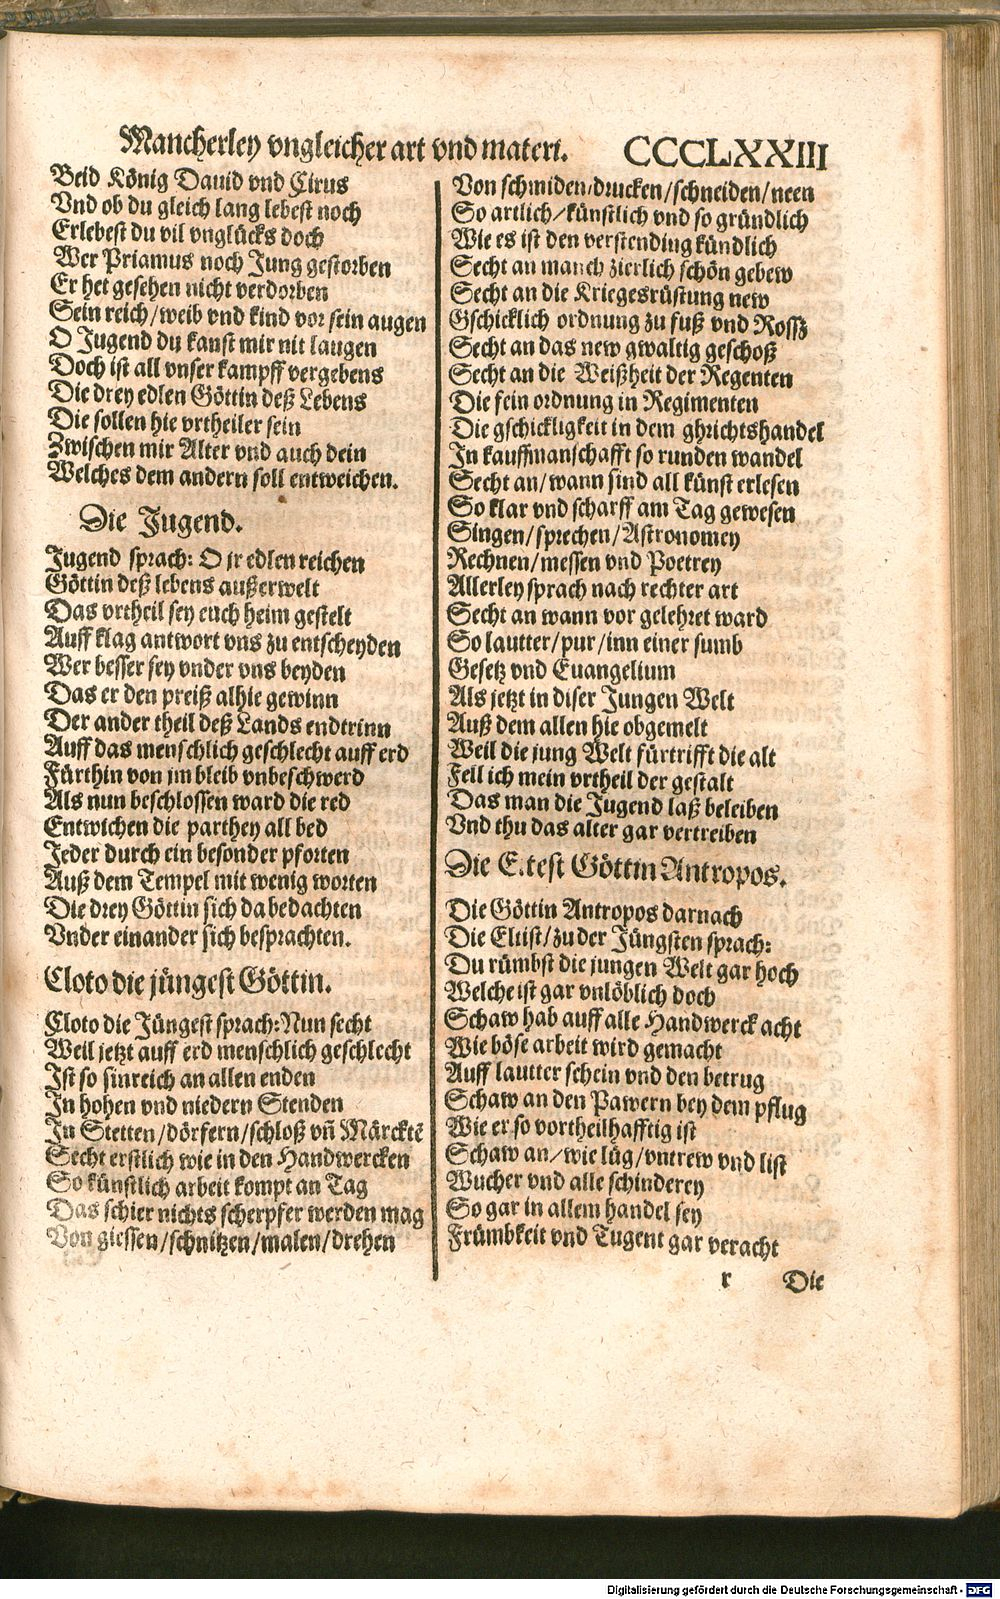 Mancherley vngleicher art vnd materi. CCCCLXXIII
Beid König Dauid vnd Cirus
Vnd ob du gleich lang lebest noch
Erlebest du vil vnglücks doch
Wer Priamus noch Jung gestorben
Er het gesehen nicht verdorben
Sein reich/weib vnd kind vor sein augen
O Jugend du kanst mir nit laugen
Doch ist all vnser kampff vergebens
Die drey edlen Göttin deß Lebens
Die sollen hie vrtheiler sein
Zwischen mir Alter vnd auch dein
Welches dem andern soll entweichen.
Die Jugend.
Jugend sprach: O jr edlen reichen
Göttin deß lebens außerwelt
Das vrtheil sey euch heim gestelt
Auff klag antwort vns zu entscheyden
Wer besser sey vnder vns beyden
Das er den preiß alhie gewinn
Der ander theil deß Lands endtrinn
Auff das menschlich geschlecht auff erd
Fürthin von jm bleib vnbeschwerd
Als nun beschlossen ward die red
Entwichen die parthey all bed
Jeder durch ein besonder pforten
Auß dem Tempel mit wenig worten
Die drey Göttin sich da bedachten
Vnder einander sich besprachten.
Cloto die jüngest Göttin.
Cloto die Jüngest sprach: Nun secht
Weil jetzt auff erd menschlich geschlecht
Ist so sinreich an allen enden
In hohen vnd niedern Stenden
In Stetten/dörfern/schloß vn̄ Märcktē
Secht erstlich wie in den Handwercken
So künstlich arbeit kompt an Tag
Das schier nichts scherpfer werden mag
Von giessen/schnitzen/malen/drehen
Von schmiden/drucken/schneiden/neen
So artlich/künstlich vnd so gründlich
Wie es ist den verstending kündlich
Secht an manch zierlich schön gebew
Secht an die Kriegesrüstung new
Gschicklich ordnung zu fuß vnd Rossz
Secht an das new gwaltig geschoß
Secht an die Weißheit der Regenten
Die fein ordnung in Regimenten
Die gschickligkeit in dem ghrichtshandel
In kauffmanschafft so runden wandel
Secht an/wann sind all künst erlesen
So klar vnd scharff am Tag gewesen
Singen/sprechen/Astronomey
Rechnen/messen vnd Poetrey
Allerley sprach nach rechter art
Secht an wann vor gelehret ward
So lautter/pur/inn einer sumb
Gesetz vnd Euangelium
Als jetzt in diser Jungen Welt
Auß dem allen hie obgemelt
Weil die jung Welt fürtrifft die alt
Fell ich mein vrtheil der gestalt
Das man die Jugend laß beleiben
Vnd thu das alter gar vertreiben
Die Eltest Göttin Antropos.
Die Göttin Antropos darnach
Die Eltist/zu der Jüngsten sprach:
Du rümbst die jungen Welt gar hoch
Welche ist gar vnlöblich doch
Schaw hab auff alle Handwerck acht
Wie böse arbeit wird gemacht
Auff lautter schein vnd den betrug
Schaw an den Pawern bey dem pflug
Wie er so vortheilhafftig ist
Schaw an/wie lüg/vntrew vnd list
Wucher vnd alle schinderey
So gar in allem handel sey
Frümbkeit vnd Tugent gar veracht
r Die
Digitalisierung gefördert durch die Deutsche Forschungsgemeinschaft - DFG